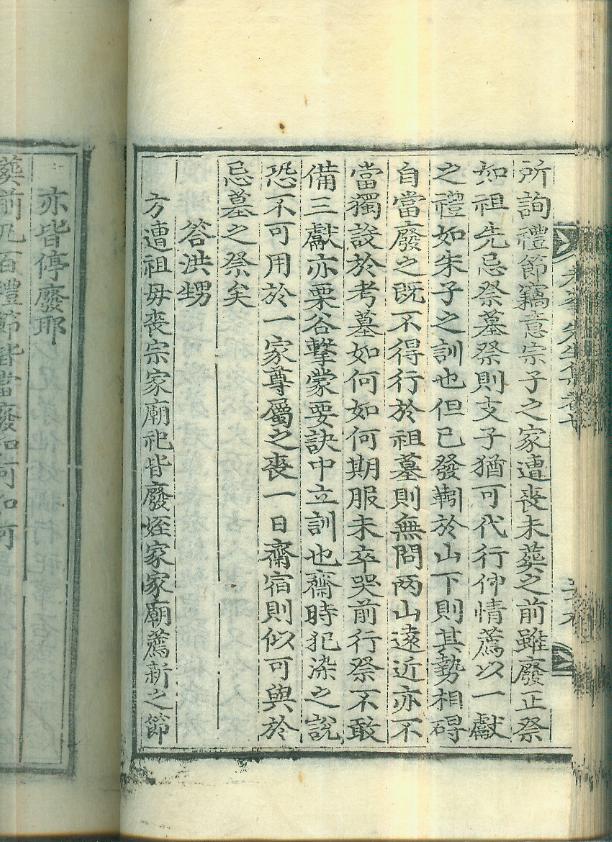 所詢禮節竊意宗子之家遭喪未葬之前雖廢正祭
如祖先忌祭墓祭則支子猶可代行伸情薦以一獻
之禮如朱子之訓也但已發靷於山下則其勢相碍
自當廢之旣不得行於祖墓則無問兩山遠近亦不
當獨設於考墓如何如何期服未卒哭前行祭不敢
備三獻亦栗谷擊蒙要訣中立訓也齋時犯染之說
恐不可用於一家尊屬之喪一日齋宿則似可與於
忌墓之祭矣
答洪甥
方遭祖母喪宗家廟祀皆廢姪家家廟薦新之節
亦皆停廢耶
葬前凡百禮節皆當廢如何如何